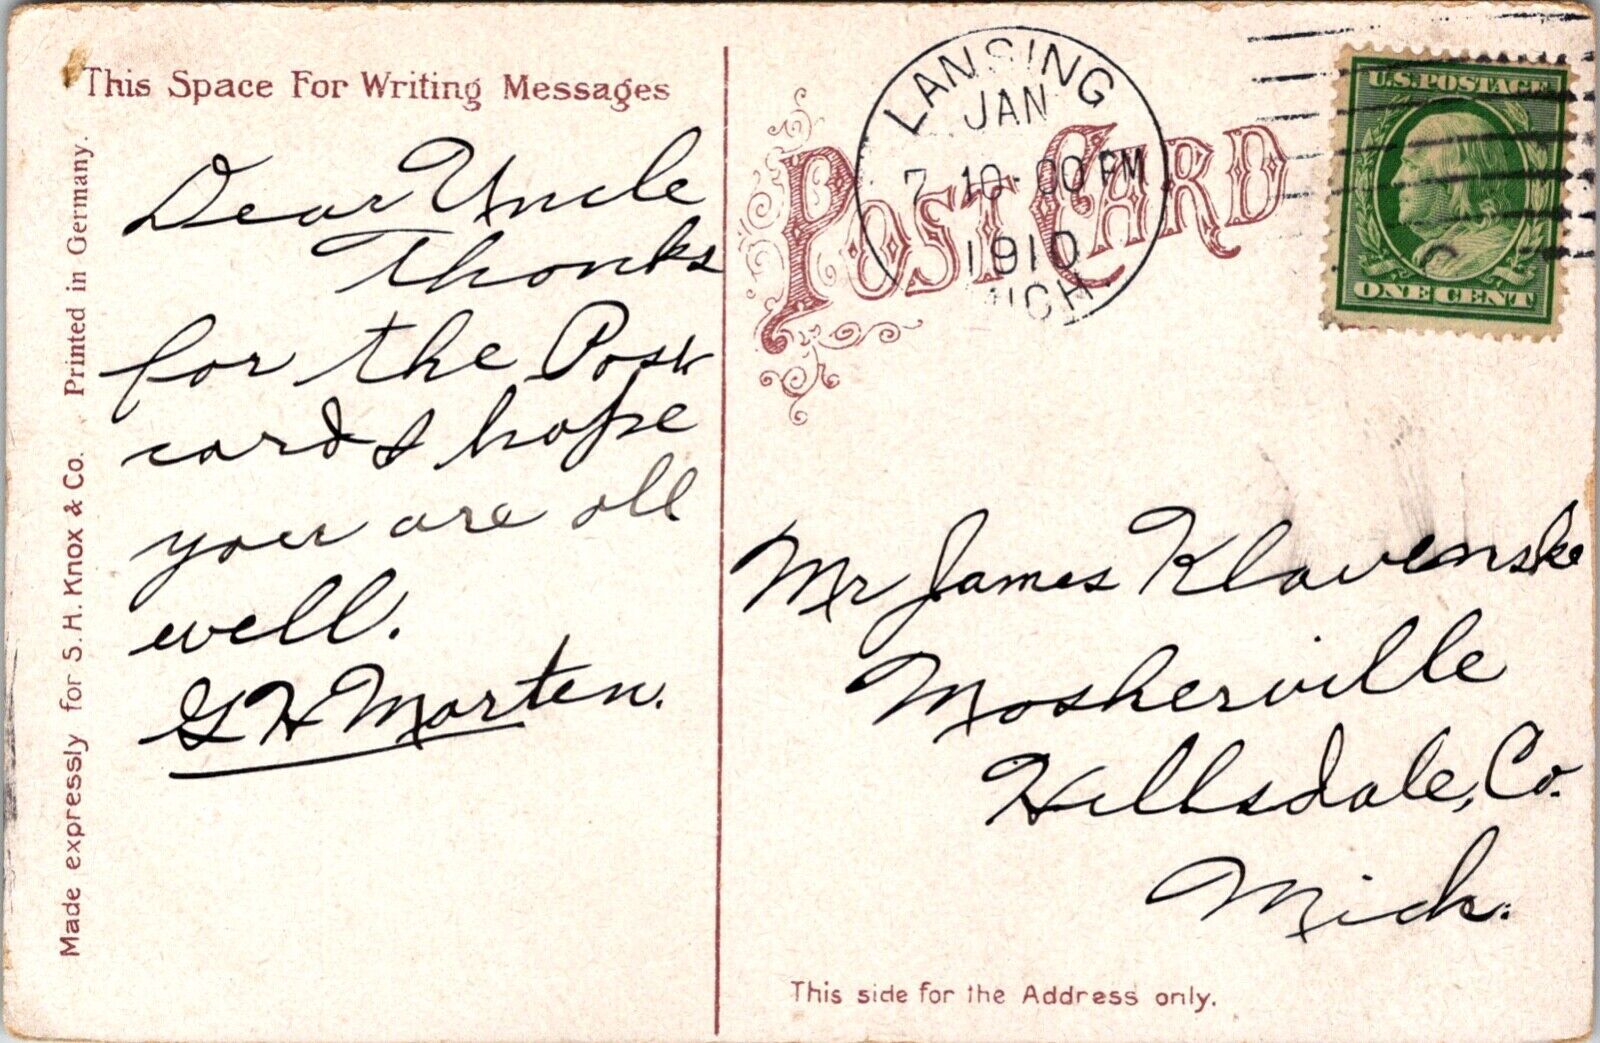 This Space For Writing Messages
Dear Uncle
Thanks
for the Post
card & hope
you are all
well.
G H Morten.
Made expressly for S. H. Knox & Co. Printed in Germany.
POST CARD
LANSING
JAN
7 10-00 PM
1910
MICH.
U.S. POSTAGE
ONE CENT
Mr James Klavenske
Mosherville
Hillsdale, Co.
Mich.
This side for the Address only.